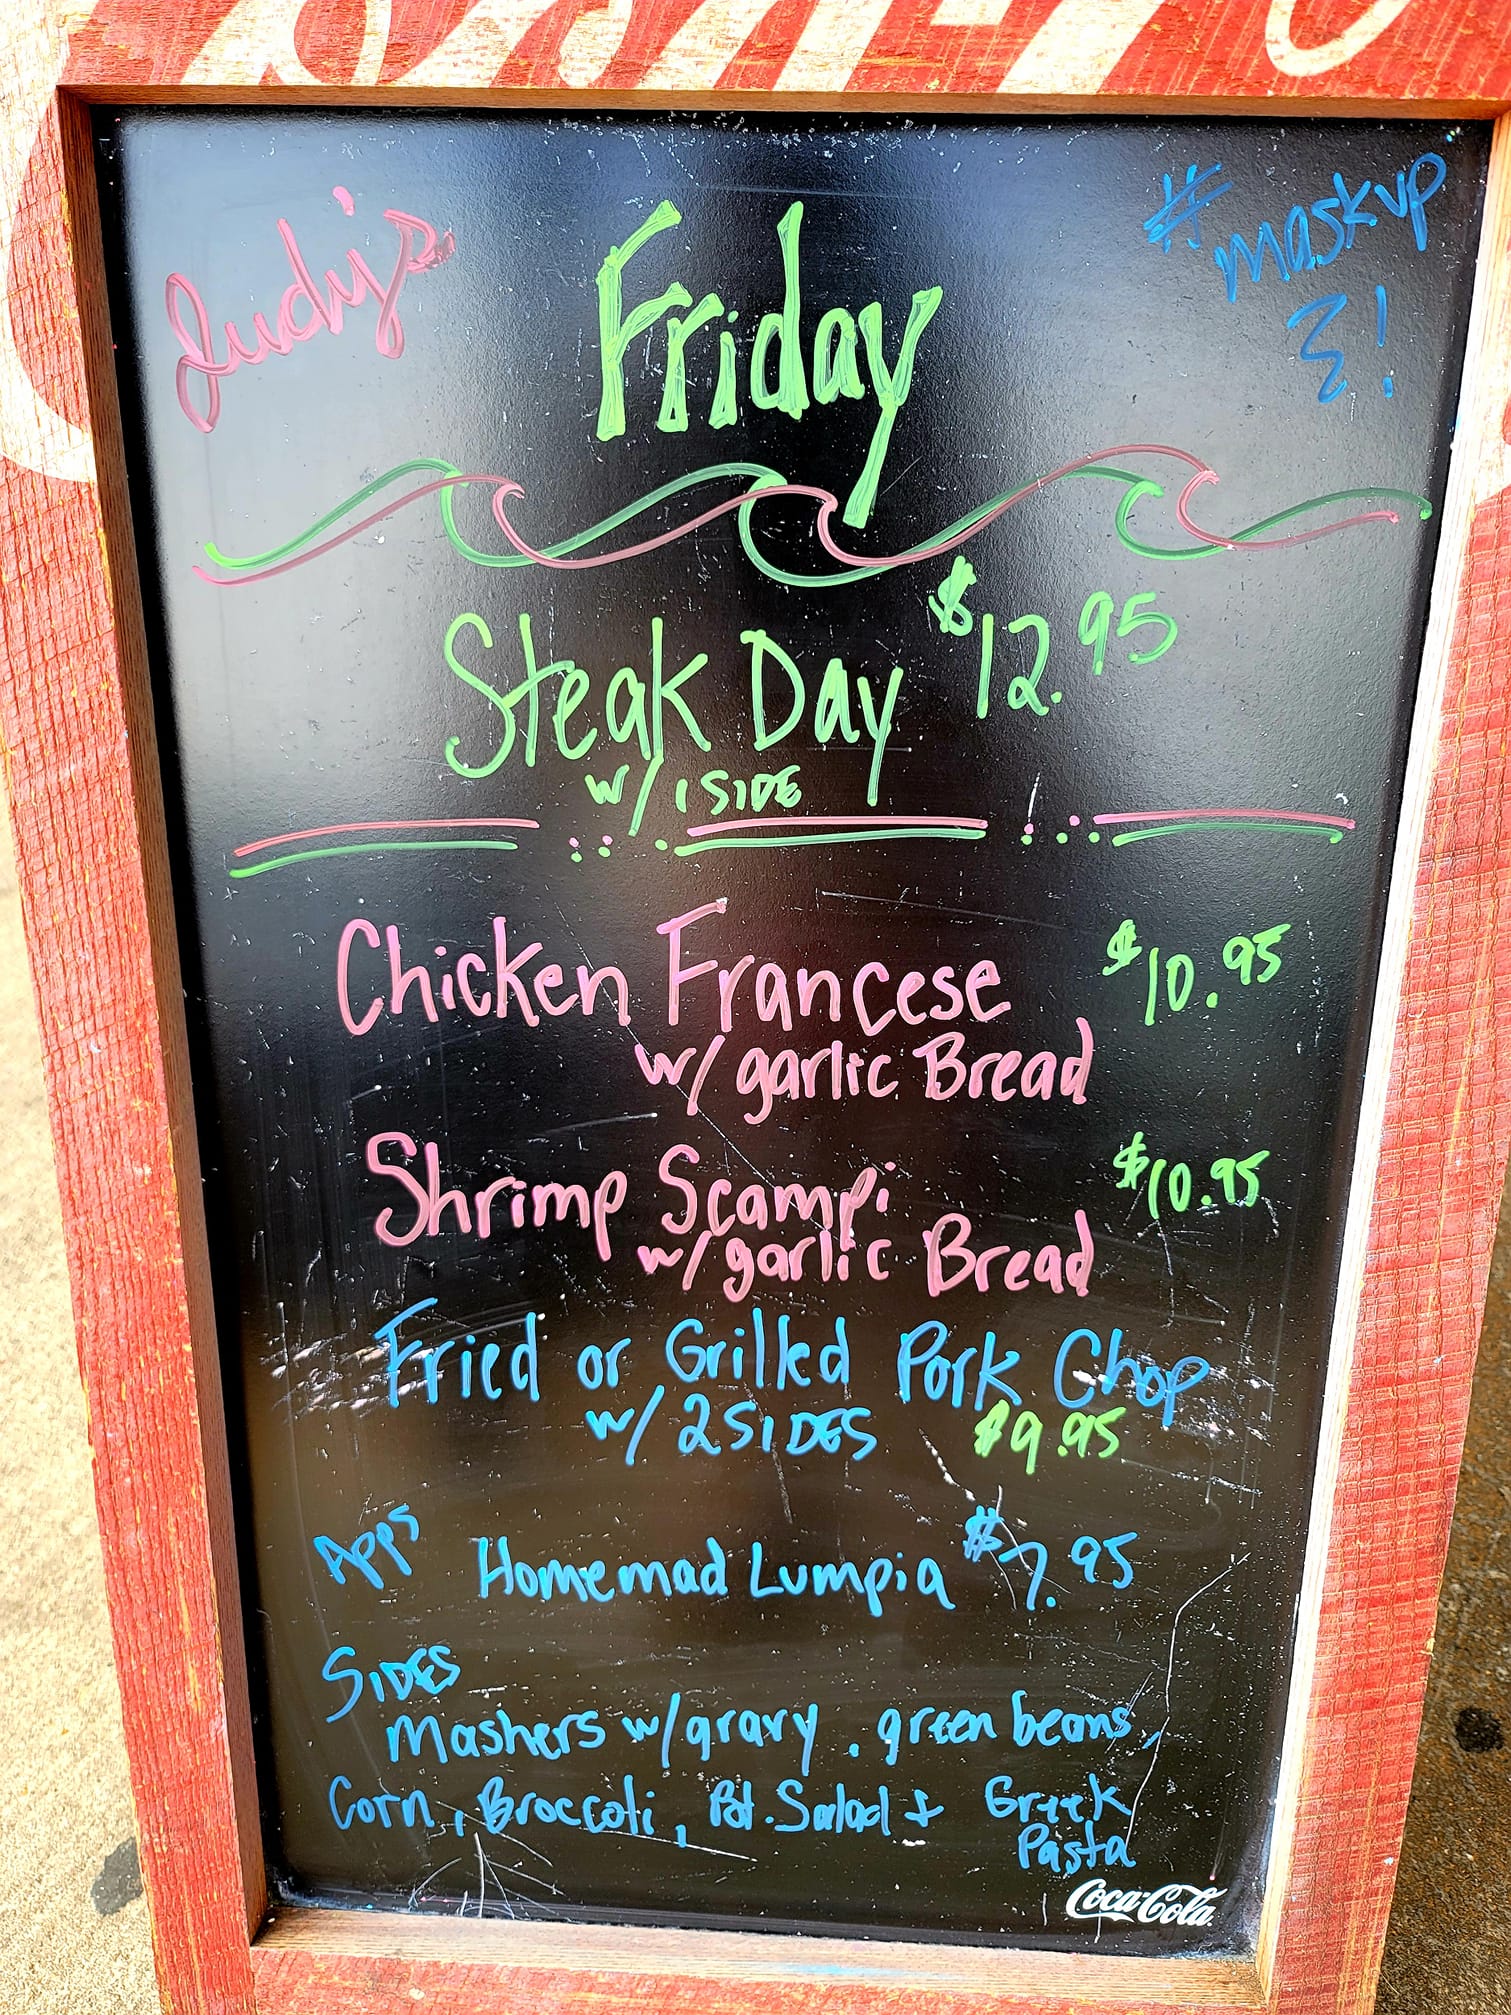 Judy's
Friday
# maskup
3!
Steak Day $12.95
w/ 1 SIDE
Chicken Francese $10.95
w/ garlic Bread
Shrimp Scampi $10.95
w/ garlic Bread
Fried or Grilled Pork Chop
w/ 2 SIDES $9.95
Apps
Homemad Lumpia $7.95
SIDES
Mashers w/gravy, green beans,
Corn, Broccoli, Pot. Salad + Greek
Pasta
Coca-Cola